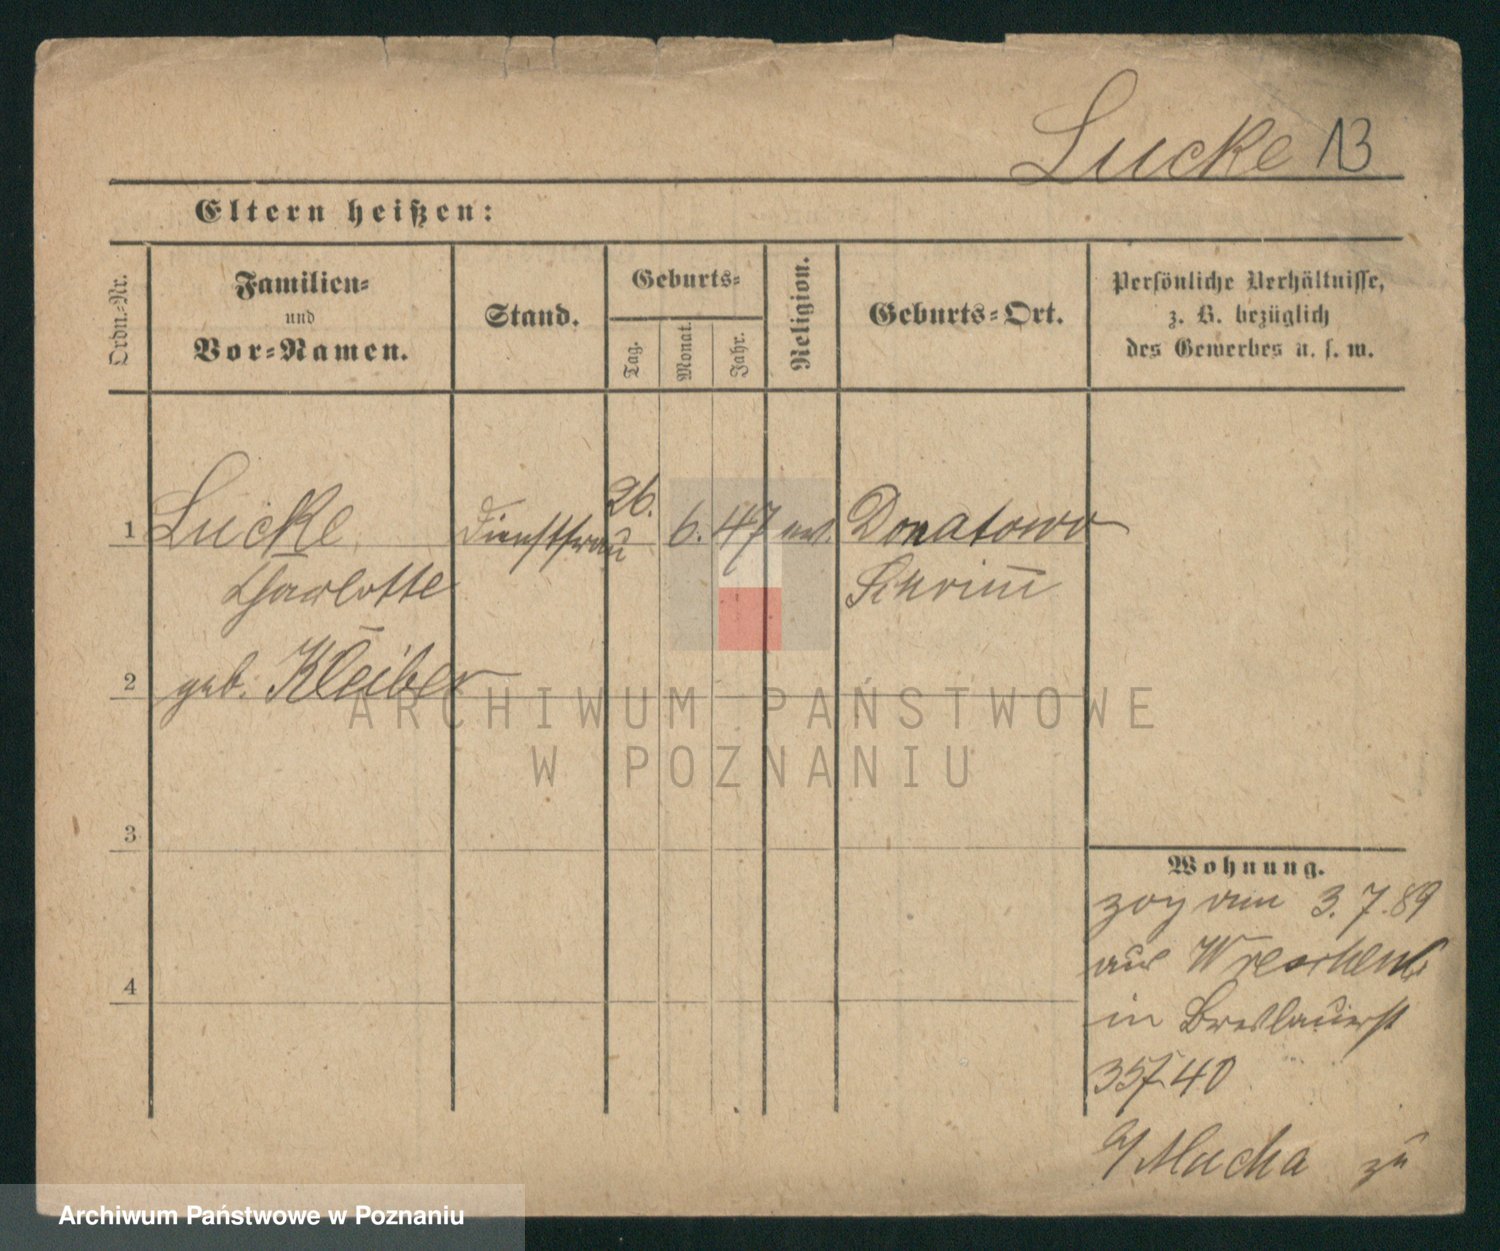 Lucke 13
Eltern heißen:
Ordn.-Nr.
Familien-
und
Vor-Namen.
Stand.
Geburts-
Tag.
Monat.
Jahr.
Religion.
Geburts-Ort.
Persönliche Verhältnisse,
z. B. bezüglich
des Gewerbes u. s. w.
1 Lucke Dienstfrau 26. 6. 47 ev. Donatowo
Charlotte Schrim̄
2 geb. Kleiber
3
4
Wohnung.
zog am 3. 7. 89
aus Wreschen
in Breslauerst
40
b/ Mucha zu
ARCHIWUM PAŃSTWOWE
W POZNANIU
Archiwum Państwowe w Poznaniu